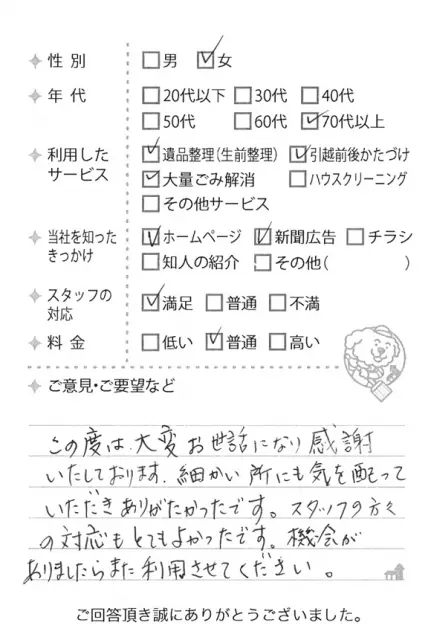 性別 □男 ☑女
年代 □20代以下 □30代 □40代
□50代 □60代 ☑70代以上
利用した ☑遺品整理(生前整理) ☑引越前後かたづけ
サービス ☑大量ごみ解消 □ハウスクリーニング
□その他サービス
当社を知った ☑ホームページ ☑新聞広告 □チラシ
きっかけ □知人の紹介 □その他( )
スタッフの
対応 ☑満足 □普通 □不満
料金 □低い ☑普通 □高い
ご意見・ご要望など
この度は大変お世話になり感謝
いたしております。細かい所にも気を配って
いただきありがたかったです。スタッフの方々
の対応もとてもよかったです。機会が
ありましたらまた利用させてください。
ご回答頂き誠にありがとうございました。